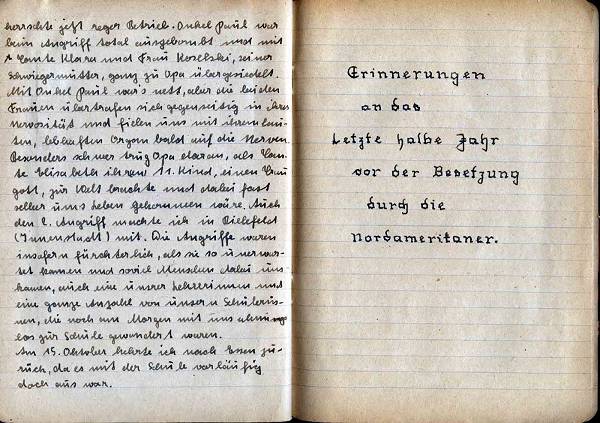 herrschte jetzt reger Betrieb. Onkel Paul war
beim Angriff total ausgebombt und mit
Tante Klara und Frau Koselski, seiner
Schwiegermutter, ganz zu Opa übergesiedelt.
Mit Onkel Paul war's nett, aber die beiden
Frauen übertrafen sich gegenseitig in ihrer
Nervosität und fielen uns mit ihrem lau-
ten, lebhaften Organ bald auf die Nerven.
Besonders schwer trug Opa daran, als Tan-
te Elisabeth ihren 11. Kind, einen Trau
gott, zur Welt brachte und dabei fast
selber ums Leben gekommen wäre. Auch
den 2. Angriff machte ich in Bielefeld
(Innenstadt) mit. Die Angriffe waren
insofern fürchterlich, als sie so unerwar-
tet kamen und soviel Menschen dabei um-
kamen, auch eine unserer Lehrerinnen und
eine ganze Anzahl von unsern Schülerin-
nen, die noch am Morgen mit uns ahnungs-
los zur Schule gewandert waren.
Am 15. Oktober kehrte ich nach Essen zu-
rück, da es mit der Schule vorläufig
doch aus war.
Erinnerungen
an das
Letzte halbe Jahr
vor der Besetzung
durch die
Nordamerikaner.